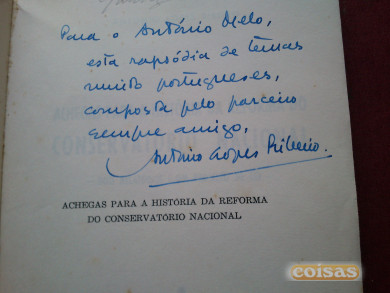 Para o António Melo,
esta rapsódia de temas
muito portugueses,
composta pelo parceiro
sempre amigo,
António Lopes Ribeiro.
ACHEGAS PARA A HISTÓRIA DA REFORMA
DO CONSERVATÓRIO NACIONAL
coisas